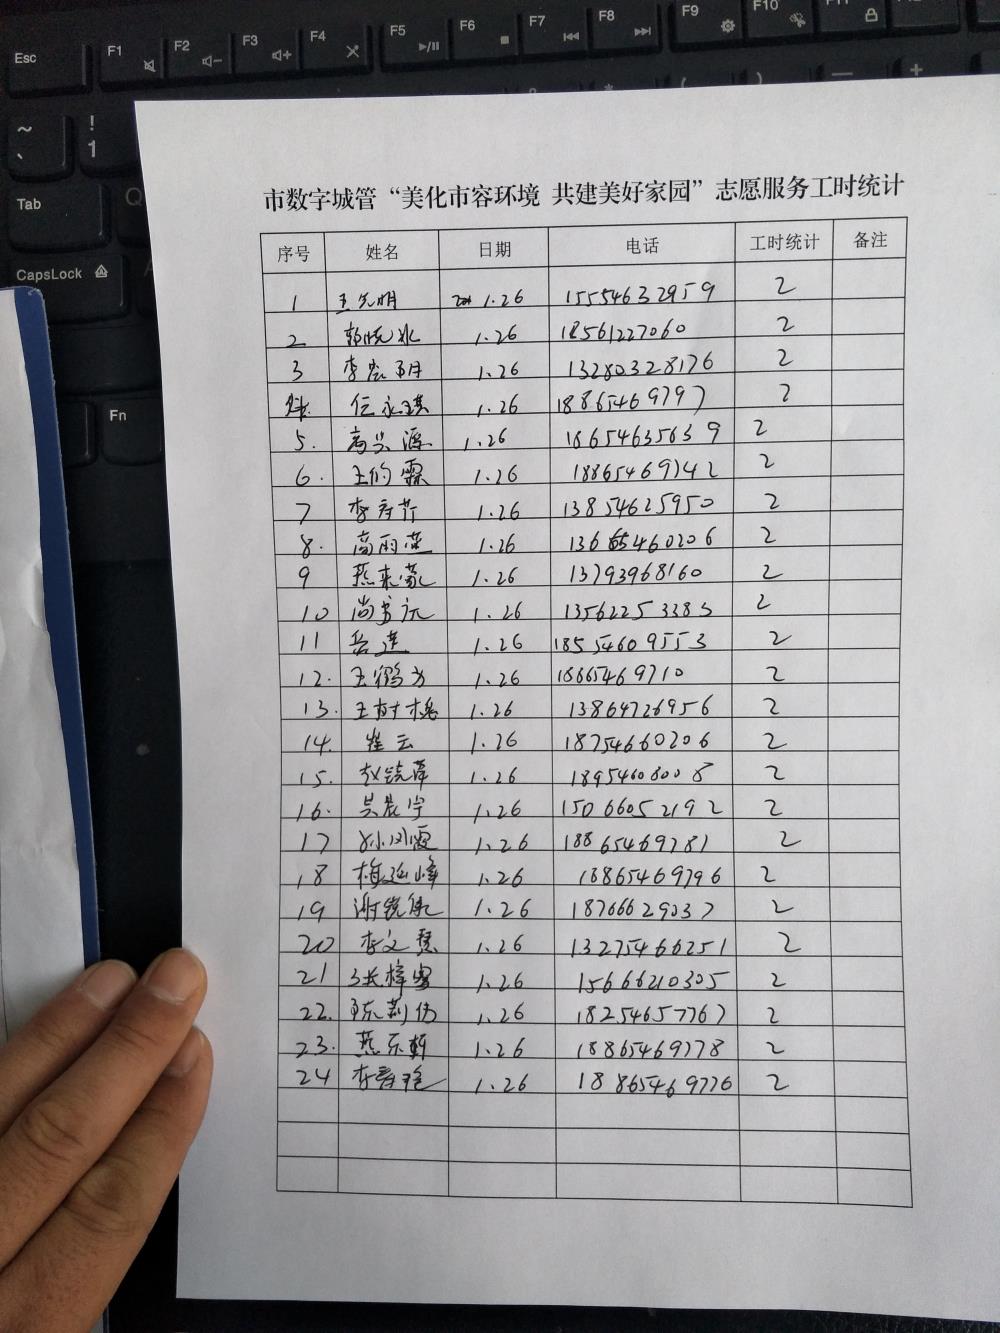 Esc F1 F2 F3 F4 F5 F6 F7 F8 F9 F10
~ ! 1
Tab Q
CapsLock
Fn
市数字城管“美化市容环境 共建美好家园”志愿服务工时统计
序号 姓名 日期 电话 工时统计 备注
1 王先明 1.26 15554632959 2
2 韩晓冰 1.26 18561227060 2
3 李 1.26 13280328176 2
任永琪 1.26 18865469797 2
5. 高兴源 1.26 18654635639 2
6. 王 霖 1.26 18865469742 2
7 李 1.26 13854625950 2
8. 高雨 1.26 13665460206 2
9 燕来蒙 1.26 13793968160 2
10 尚 1.26 13562253383 2
11 岳莲 1.26 18554609553 2
12. 王鹤 1.26 18865469710 2
13. 王树 1.26 13864726956 2
14. 崔云 1.26 18754660206 2
15. 赵 萍 1.26 18954608008 2
16. 吴 宇 1.26 15066052192 2
17 孙凤霞 1.26 18865469781 2
18 梅延峰 1.26 18865469796 2
19 谢 1.26 18766629037 2
20 李文慧 1.26 13275466251 2
21 张梓 1.26 15666210305 2
22. 陈莉伟 1.26 18254657767 2
23. 燕乐 1.26 18865469778 2
24 李 艳 1.26 18865469776 2